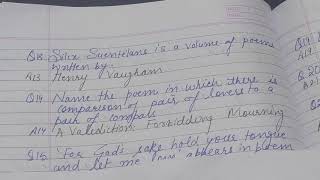 Q13. Silex Scentelans is a volume of poems
written by.
A13 Henry Vaugham
Q14 Name the poem in which there is
comparison of pair of lovers to a
pair of compass
A14 A Validiction: Forbidding Mourning
Q15 "For God's sake hold your tongue
and let me appears in poem
Q19
Q 20
A2